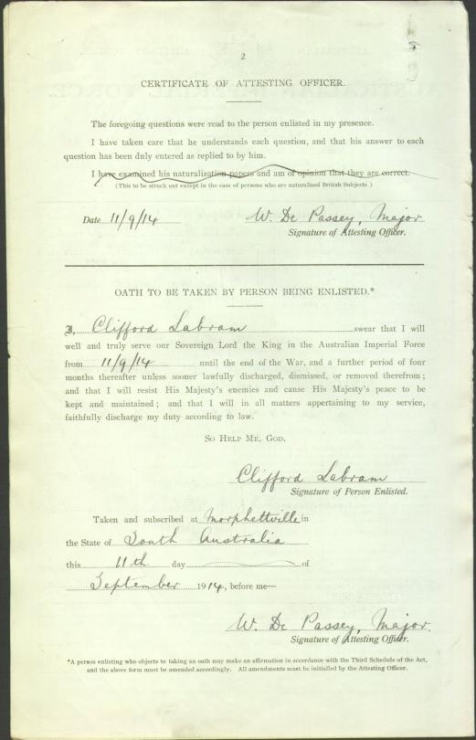 2
CERTIFICATE OF ATTESTING OFFICER.
The foregoing questions were read to the person enlisted in my presence.
I have taken care that he understands each question, and that his answer to each
question has been duly entered as replied to by him.
I have examined his naturalization papers and am of opinion that they are correct.
(This to be struck out except in the case of persons who are naturalized British Subjects.)
Date 11/9/14 W. De Passey, Major
Signature of Attesting Officer.
OATH TO BE TAKEN BY PERSON BEING ENLISTED.*
I, Clifford Labram swear that I will
well and truly serve our Sovereign Lord the King in the Australian Imperial Force
from 11/9/14 until the end of the War, and a further period of four
months thereafter unless sooner lawfully discharged, dismissed, or removed therefrom;
and that I will resist His Majesty's enemies and cause His Majesty's peace to be
kept and maintained; and that I will in all matters appertaining to my service,
faithfully discharge my duty according to law.
SO HELP ME, GOD.
Clifford Labram
Signature of Person Enlisted.
Taken and subscribed at Morphettville in
the State of South Australia
this 11th day of
September 1914, before me—
W. De Passey, Major.
Signature of Attesting Officer.
*A person enlisting who objects to taking an oath may make an affirmation in accordance with the Third Schedule of the Act,
and the above form must be amended accordingly. All amendments must be initialled by the Attesting Officer.